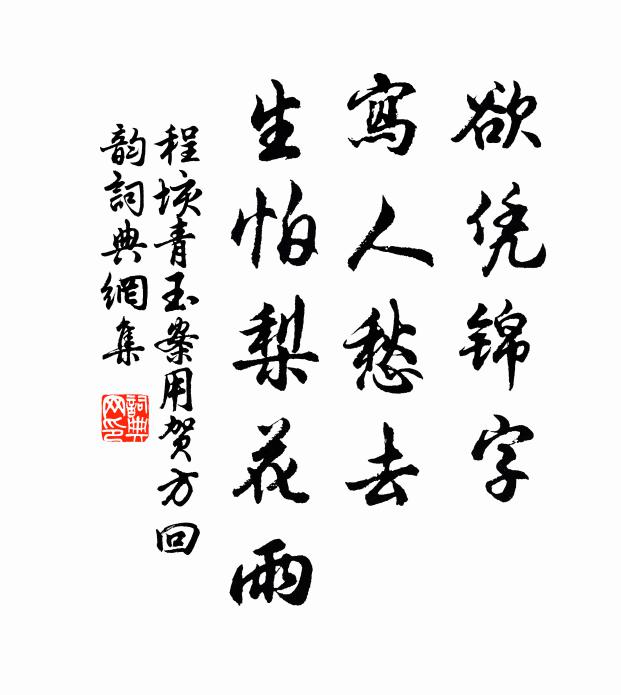 欲凭锦字
寫人愁去
生怕梨花雨
程垓青玉案用贺方回
韵詞典網集
詞典网印